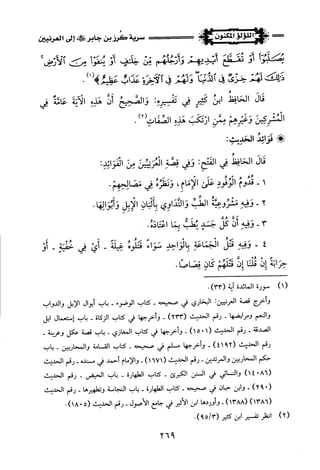 اللؤلؤ المكنون
سرية كرز بن جابر ﷺ إلى العرنيين
يُصَلَّبُوٓاْ أَوْ تُقَطَّعَ أَيْدِيهِمْ وَأَرْجُلُهُم مِّنْ خِلَٰفٍ أَوْ يُنفَوْاْ مِنَ ٱلْأَرْضِ
ذَٰلِكَ لَهُمْ خِزْىٌ فِى ٱلدُّنْيَا وَلَهُمْ فِى ٱلْأٓخِرَةِ عَذَابٌ عَظِيمٌ﴾(١).
قَالَ الْحَافِظُ ابنُ كَثِيرٍ فِي تَفْسِيرِهِ: وَالصَّحِيحُ أَنَّ هَذِهِ الْآيَةَ عَامَّةٌ فِي
الْمُشْرِكِينَ وَغَيْرِهِمْ مِمَّنِ ارْتَكَبَ هَذِهِ الصِّفَاتِ(٢).
* فَوَائِدُ الْحَدِيثِ:
قَالَ الْحَافِظُ فِي الْفَتْحِ: وَفِي قِصَّةِ الْعُرَنِيِّينَ مِنَ الْفَوَائِدِ:
١ - قُدُومُ الْوُفُودِ عَلَى الْإِمَامِ، وَنَظَرُهُ فِي مَصَالِحِهِمْ.
٢ - وَفِيهِ مَشْرُوعِيَّةُ الطِّبِّ وَالتَّدَاوِي بِأَلْبَانِ الْإِبِلِ وَأَبْوَالِهَا.
٣ - وَفِيهِ أَنَّ كُلَّ جَسَدٍ يُطَبُّ بِمَا اعْتَادَهُ.
٤ - وَفِيهِ قَتْلُ الْجَمَاعَةِ بِالْوَاحِدِ سَوَاءٌ قَتَلُوهُ غِيلَةً - أَيْ فِي خُفْيَةٍ - أَوْ
حِرَابَةً إِنْ قُلْنَا إِنَّ قَتْلَهُمْ كَانَ قِصَاصًا.
(١) سورة المائدة آية (٣٣).
وأخرج قصة العرنيين: البخاري في صحيحه - كتاب الوضوء - باب أبوال الإبل والدواب
والغنم ومرابضها - رقم الحديث (٢٣٣) - وأخرجها في كتاب الزكاة - باب إستعمال ابل
الصدقة - رقم الحديث (١٥٠١) - وأخرجها في كتاب المغازي - باب قصة عكل وعرينة -
رقم الحديث (٤١٩٢) - وأخرجها مسلم في صحيحه - كتاب القسامة والمحاربين - باب
حكم المحاربين والمرتدين - رقم الحديث (١٦٧١) - والإمام أحمد في مسنده - رقم الحديث
(١٤٠٨٦) - والنسائي في السنن الكبرى - كتاب الطهارة - باب الحيض - رقم الحديث
(٢٩٠) - وابن حبان في صحيحه - كتاب الطهارة - باب النجاسة وتطهيرها - رقم الحديث
(١٣٨٦) (١٣٨٨) - وأوردها ابن الأثير في جامع الأصول - رقم الحديث (١٨٠٥).
(٢) انظر تفسير ابن كثير (٩٥/٣).
٢٦٩